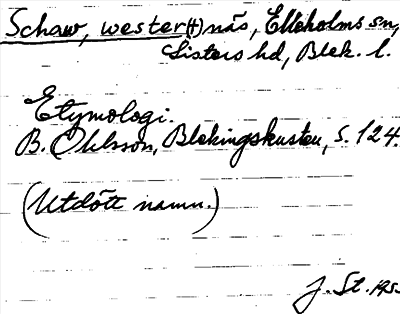 Schaw, wester(t)näs, Elleholms sn,
Listers hd, Blek. l.
Etymologi.
B. Ohlsson, Blekingskusten, s. 124.
(Utdött namn.)
J. St. 195